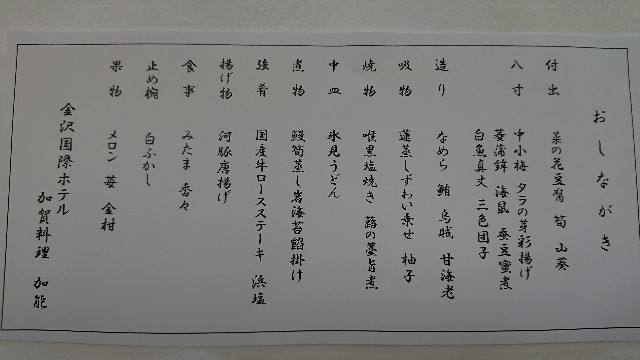 おしながき
付出 菜の花豆腐 筍 山葵
八寸 中小梅 タラの芽彩揚げ
菱蒲鉾 海鼠 蚕豆蜜煮
白魚真丈 三色団子
造り なめら 鮪 烏賊 甘海老
吸物 蓮蒸しずわい乗せ 柚子
焼物 喉黒塩焼き 蕗の薹旨煮
中皿 氷見うどん
煮物 鰻筍蒸し岩海苔餡掛け
強肴 国産牛ロースステーキ 浜塩
揚げ物 河豚唐揚げ
食事 みたま 香々
止め椀 白ふかし
果物 メロン 苺 金柑
金沢国際ホテル
加賀料理 加能